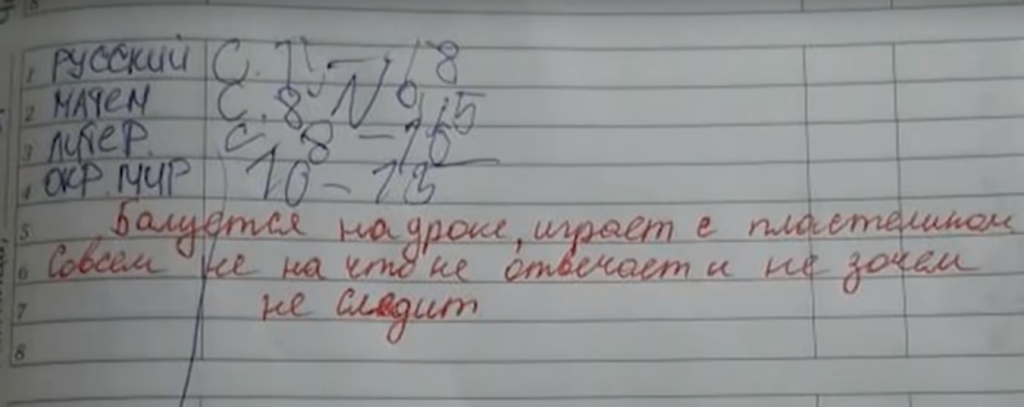 1 РУССКИЙ С. 11, – 18
2 МАТЕМ С. 8 № 9,5
3 ЛИТЕР. с. 8 – 16
4 ОКР. МИР 10 – 13
5 Балуется на уроке, играет с пластелином
6 Совсем не на что не отвечает и не зачем
7 не следит
8